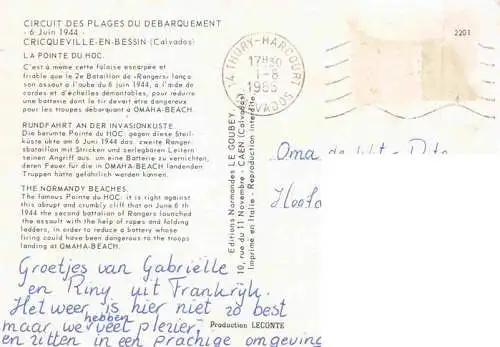 CIRCUIT DES PLAGES DU DEBARQUEMENT
- 6 Juin 1944 -
CRICQUEVILLE-EN-BESSIN (Calvados)
LA POINTE DU HOC.
C'est à même cette falaise escarpée et
friable que le 2e Bataillon de «Rangers» lança
son assaut a l'aube du 6 juin 1944, à l'aide de
cordes et d'échelles démontables, pour réduire
une batterie dont le tir devait être dangereux
pour les troupes débarquant à OMAHA-BEACH.
RUNDFAHRT AN DER INVASIONKÜSTE.
Die berümte Pointe du HOC. gegen diese Steil-
küste ukte am 6 Juni 1944 das. zweite Ranger-
sbataillon mit Stricken und zerlegbaren Leitern
seinen Angriff aus. um eine Batterie zu vernichten,
deren Feuer für die in OMAHA-BEACH landenden
Truppen hätte gefährlich werden kannen.
THE NORMANDY BEACHES.
The famous Pointe du HOC: it is right against
this abrupt and crumbly cliff that on June 6 th
1944 the second battalion of Rangers launched
the assault with the help of ropes and folding
ladders, in order to reduce a battery whose
firing could have been dangerous to the troops
landing at OMAHA-BEACH.
14 THURY-HARCOURT
17H30
1-8
1985
CALVADOS
2201
Editions Normandes LE GOUBEY
10, rue du 11 Novembre - CAEN (Calvados)
Imprimé en Italie - Reproduction interdite
Oma
Groetjes van Gabriëlle
en Riny uit Frankrijk.
Het weer is hier niet zo best
maar we hebben veel plezier,
en zitten in een prachige omgeving
Production LECONTE